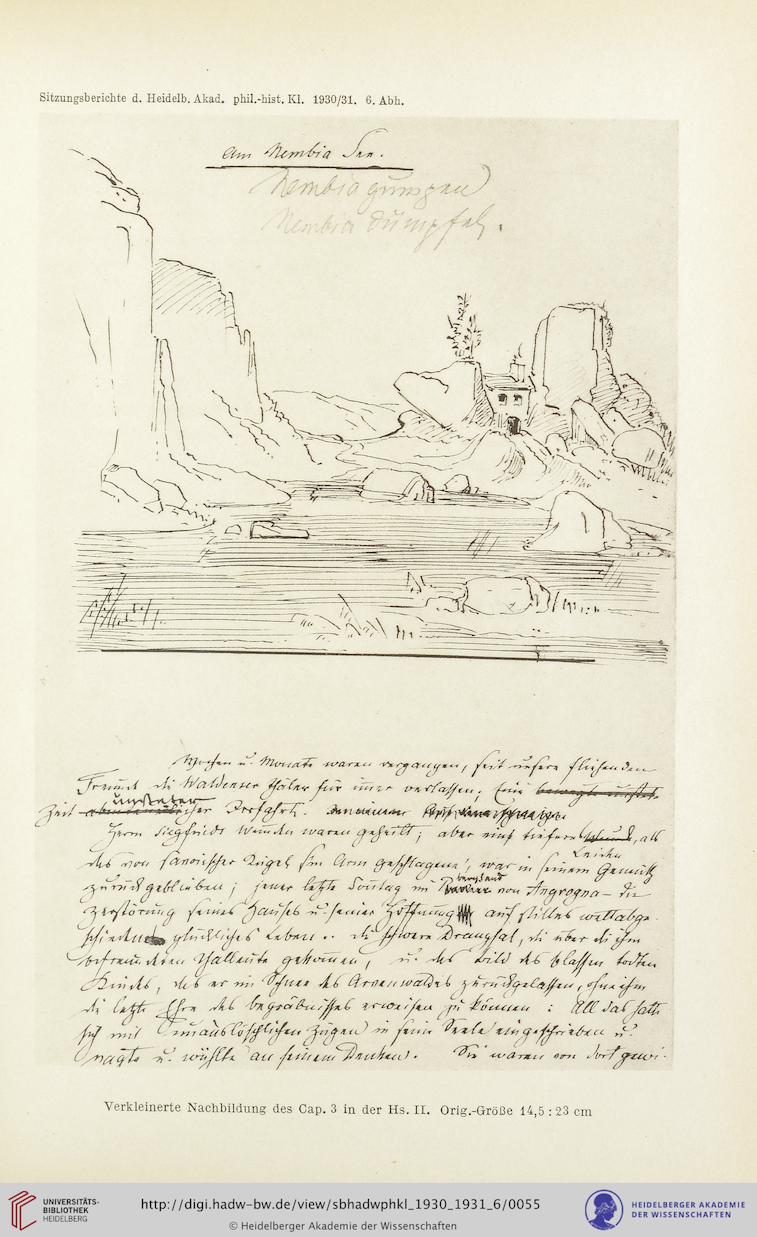 Sitzungsberichte d. Heidelb. Akad. phil.-hist. Kl. 1930/31. 6. Abh.
Am Nembia See.
Nembia
Nembia Dümpfel
Wochen u. Monate waren vergangen, seit unsere fliehenden
Freunde die Waldenser Thäler für immer verlassen. Eine
unstete
Zeit Irrfahrt.
Herrn Siegfrieds Wunden waren geheilt; aber eines tiefere, als
Leiden
des von savoischer Kugel im Arm geschlagene, war in seinem Gemüth
bergland
zurückgeblieben; jener letzte Sonntag im von Angrogna – die
Zerstörung seines Hauses u. seiner Hoffnung auf stilles weltabge-
schiedenes glückliches Leben .. die schwere Drangsal, die über die ihm
befreundeten Thalleute gekommen, u. das Bild des blassen todten
Kindes, das er im Schnee des Arvenwaldes zurückgelassen, ohne ihm
die letzte Ehre des Begräbnisses erweisen zu können : All das hatte
sich mit unauslöschlichen Zügen in seine Seele eingeschrieben u.
nagte u. wühlte an seinem Denken. Sie waren von dort gewi-
Verkleinerte Nachbildung des Cap. 3 in der Hs. II. Orig.-Größe 14,5 : 23 cm
UNIVERSITÄTS-
BIBLIOTHEK
HEIDELBERG
http://digi.hadw-bw.de/view/sbhadwphkl_1930_1931_6/0055
© Heidelberger Akademie der Wissenschaften
HEIDELBERGER AKADEMIE
DER WISSENSCHAFTEN